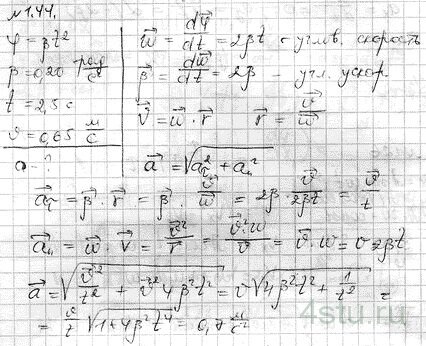 №1.44.
φ = βt²
β = 0,20 рад/с²
t = 2,5 с
ϑ = 0,65 м/с
a - ?
w⃗ = dφ⃗/dt = 2βt - углов. скорость
β⃗ = dw⃗/dt = 2β - угл. ускор.
V⃗ = w⃗ · r⃗ r⃗ = ϑ⃗/w⃗
a⃗ = √(a_τ² + a_n²)
a⃗_τ = β⃗ · r⃗ = β⃗ · ϑ⃗/w⃗ = 2β ϑ⃗/2βt = ϑ⃗/t
a⃗_n = w⃗ · V⃗ = ϑ⃗²/r⃗ = ϑ⃗²·w/ϑ⃗ = ϑ⃗ · w = ϑ 2βt
a⃗ = √(ϑ⃗²/t² + ϑ⃗² 4β²t²) = ϑ√(4β²t² + 1/t²) =
= ϑ/t √(1+4β²t⁴) = 0,7 м/с²
4stu.ru